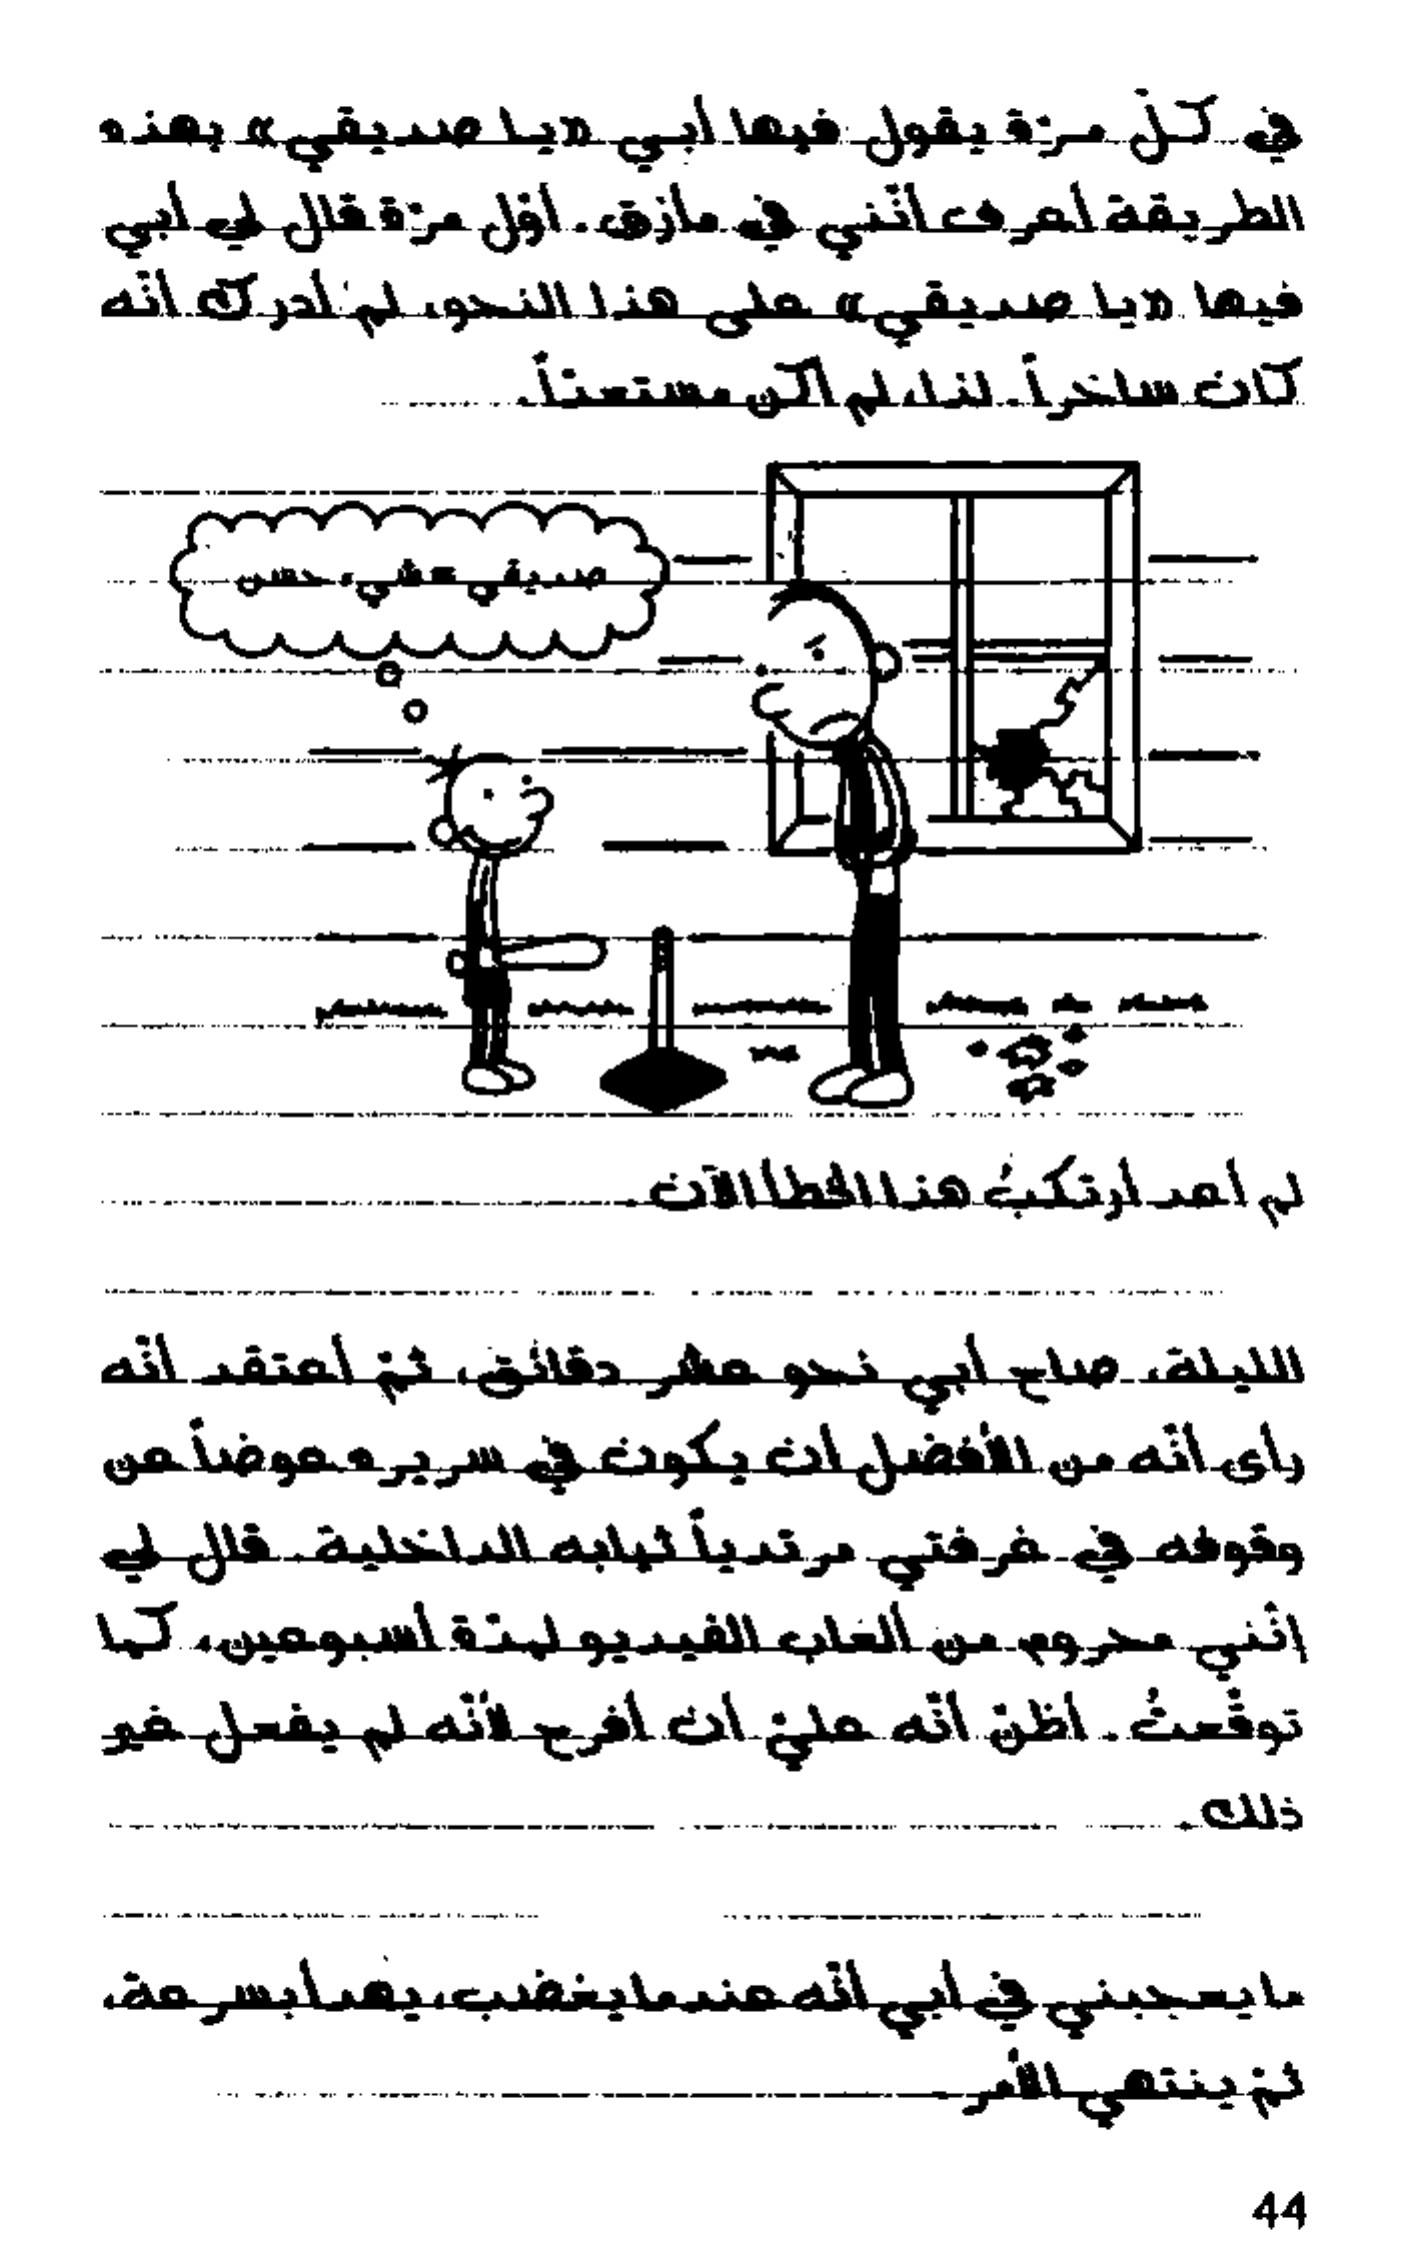 في كلّ مرّة يقول فيها أبي «يا صديقي» بهذه
الطريقة أعرف أنّني في مأزق. أوّل مرّة قال لي أبي
فيها «يا صديقي» على هذا النحو، لم أدرك أنّه
كان ساخراً. لذا، لم أكن مستعدّاً.
صديقي = شيء حسن
لم أعد أرتكبُ هذا الخطأ الآن.
الليلة، صاح أبي نحو عشر دقائق، ثمّ أعتقد أنّه
رأى أنّه من الأفضل أن يكون في سريره عوضاً عن
وقوفه في غرفتي مرتدياً ثيابه الداخلية. قال لي
إنّني محروم من ألعاب الفيديو لمدّة أسبوعين، كما
توقّعتُ. أظنّ أنّه عليّ أن أفرح لأنّه لم يفعل غير
ذلك.
ما يعجبني في أبي أنّه عندما يغضب، يهدأ بسرعة،
ثمّ ينتهي الأمر.
44